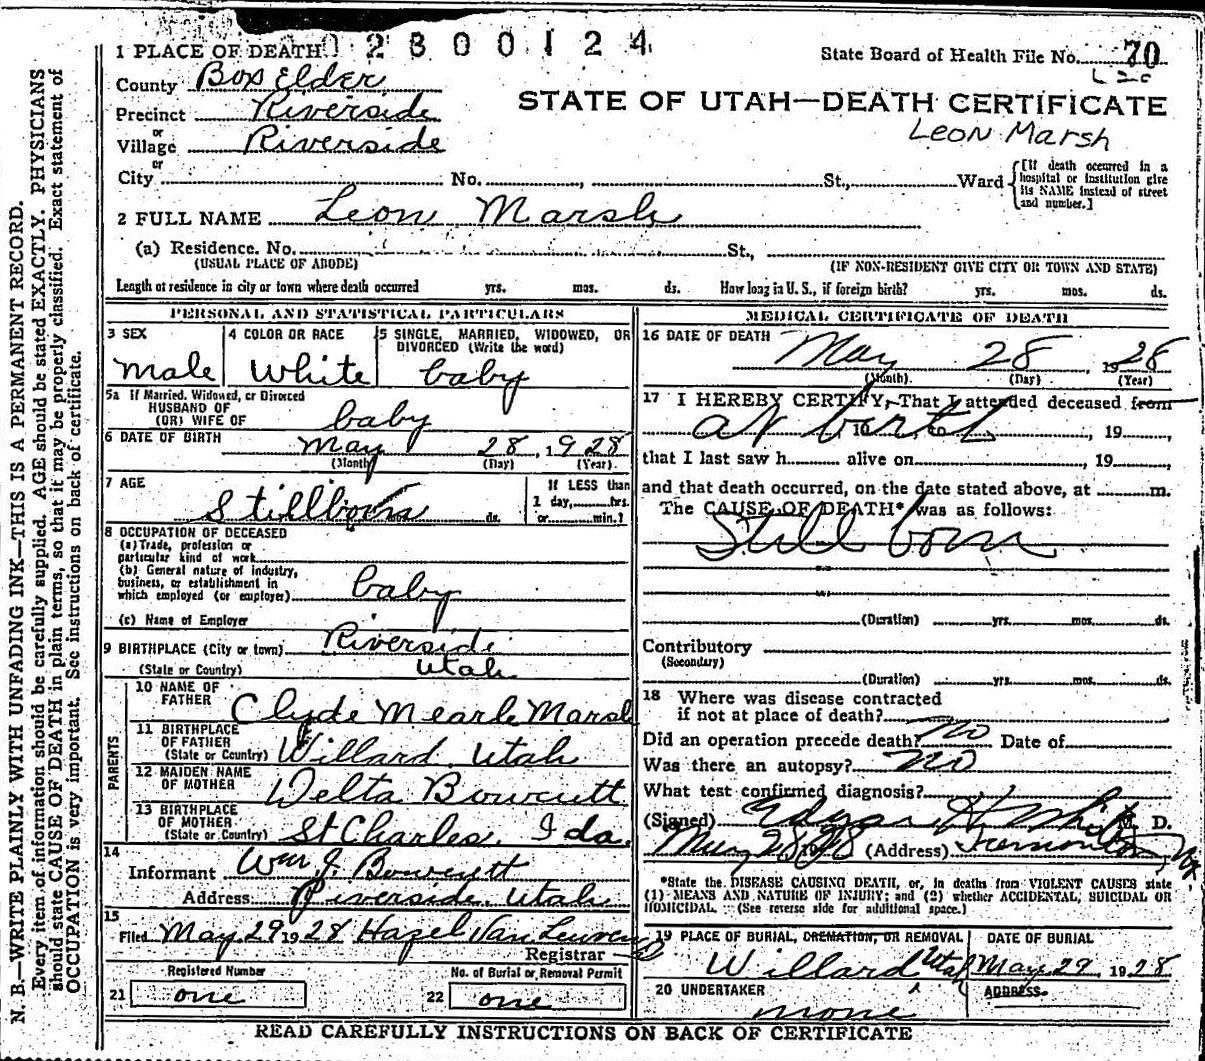 1 PLACE OF DEATH 02300124
State Board of Health File No. 70
County Box Elder
STATE OF UTAH—DEATH CERTIFICATE
Precinct Riverside
Leon Marsh
or
Village Riverside
or
City No. , St., Ward
[If death occurred in a hospital or institution give its NAME instead of street and number.]
2 FULL NAME Leon Marsh
(a) Residence. No. St.,
(USUAL PLACE OF ABODE) (IF NON-RESIDENT GIVE CITY OR TOWN AND STATE)
Length of residence in city or town where death occurred yrs. mos. ds. How long in U. S., if foreign birth? yrs. mos. ds.
PERSONAL AND STATISTICAL PARTICULARS
3 SEX 4 COLOR OR RACE 5 SINGLE, MARRIED, WIDOWED, OR
DIVORCED (Write the word)
male White baby
5a If Married, Widowed, or Divorced
HUSBAND OF
(OR) WIFE OF baby
6 DATE OF BIRTH May 28, 1928
(Month) (Day) (Year)
7 AGE If LESS than
Stillborn mos. ds. 1 day, hrs.
or min.?
8 OCCUPATION OF DECEASED
(a) Trade, profession or
particular kind of work
(b) General nature of industry,
business, or establishment in
which employed (or employer) baby
(c) Name of Employer
9 BIRTHPLACE (City or town) Riverside
(State or Country) Utah
PARENTS
10 NAME OF
FATHER Clyde Mearle Marsh
11 BIRTHPLACE
OF FATHER
(State or Country) Willard Utah
12 MAIDEN NAME
OF MOTHER Delta Bowcutt
13 BIRTHPLACE
OF MOTHER
(State or Country) St Charles, Ida.
14
Informant Wm J. Bowcutt
Address Riverside, Utah
15
Filed May 29 1928 Hazel Van
Registrar
Registered Number No. of Burial or Removal Permit
21 one 22 one
MEDICAL CERTIFICATE OF DEATH
16 DATE OF DEATH May 28, 1928
(Month) (Day) (Year)
17 I HEREBY CERTIFY, That I attended deceased from
at birth, 19 , to , 19 ,
that I last saw h alive on , 19 ,
and that death occurred, on the date stated above, at m.
The CAUSE OF DEATH* was as follows:
Still born
(Duration) yrs. mos. ds.
Contributory
(Secondary)
(Duration) yrs. mos. ds.
18 Where was disease contracted
if not at place of death?
Did an operation precede death? No Date of
Was there an autopsy? No
What test confirmed diagnosis?
(Signed) Edgar H White M. D.
May 28 1928 (Address) Tremonton,
*State the DISEASE CAUSING DEATH, or, in deaths from VIOLENT CAUSES state
(1) MEANS AND NATURE OF INJURY; and (2) whether ACCIDENTAL, SUICIDAL OR
HOMICIDAL. (See reverse side for additional space.)
19 PLACE OF BURIAL, CREMATION, OR REMOVAL DATE OF BURIAL
Willard, Utah May 29, 1928
20 UNDERTAKER ADDRESS
none
READ CAREFULLY INSTRUCTIONS ON BACK OF CERTIFICATE
N. B.—WRITE PLAINLY WITH UNFADING INK—THIS IS A PERMANENT RECORD.
Every item of information should be carefully supplied. AGE should be stated EXACTLY. PHYSICIANS
should state CAUSE OF DEATH in plain terms, so that it may be properly classified. Exact statement of
OCCUPATION is very important. See instructions on back of certificate.